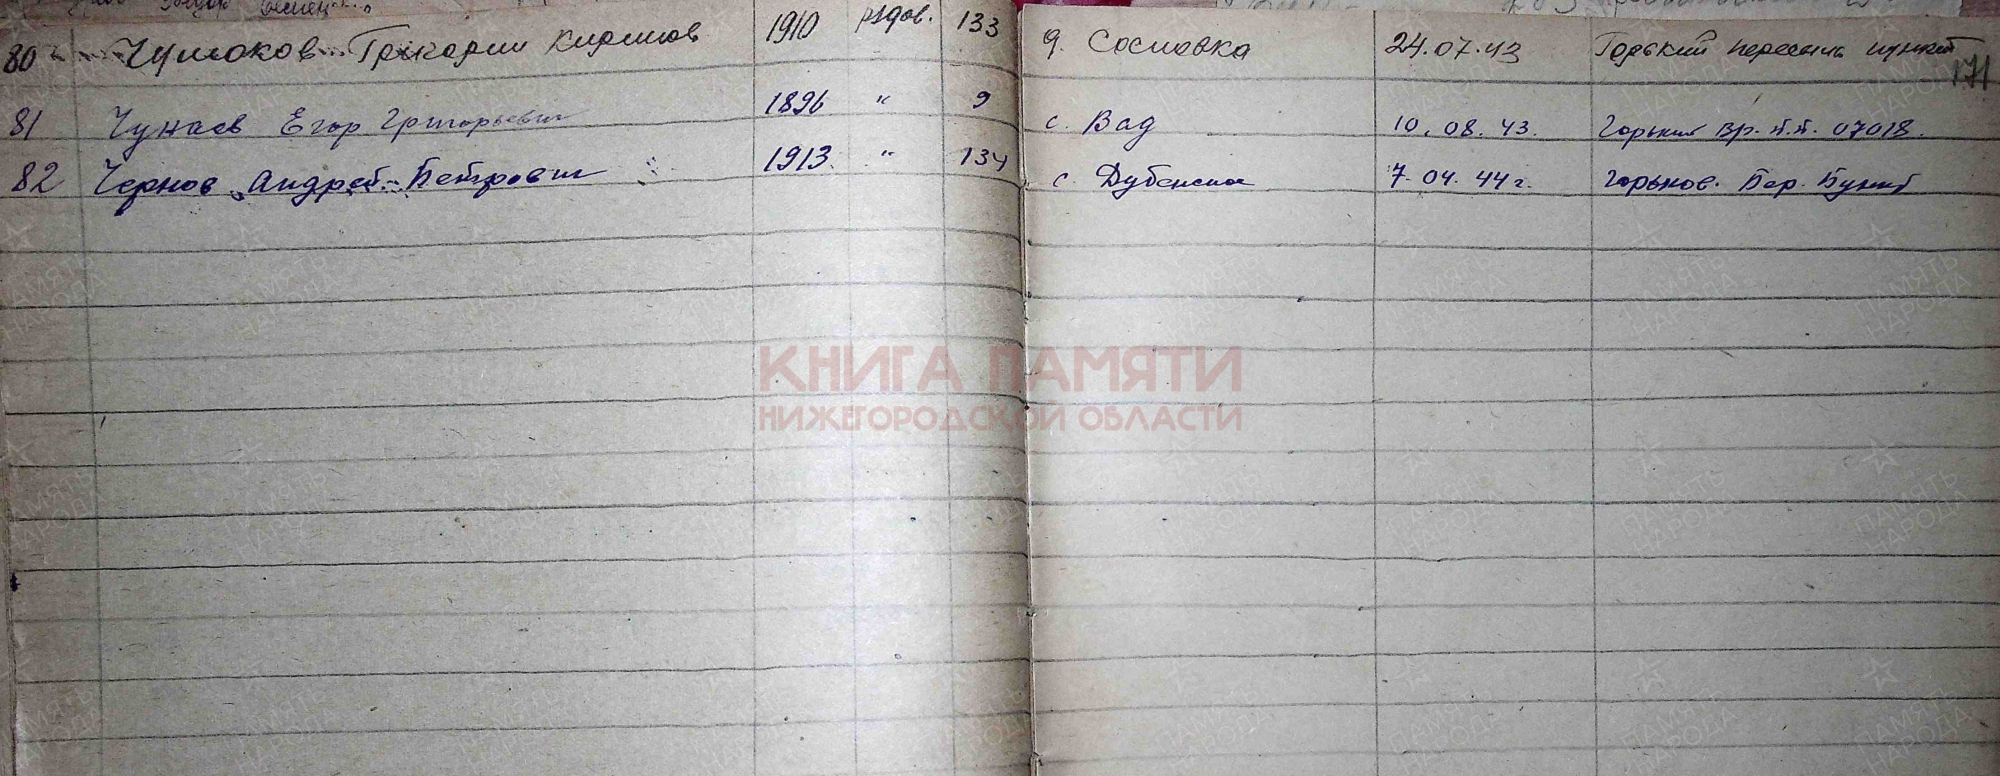 80 Чушоков Григории Кирилов 1910 рядов. 133 д. Сосновка 24.07.43 Горький пересыль пункт
171
81 Чунаев Егор Григорьевич 1896 " 9 с. Вад 10.08.43. Горький вр. п.п. 07018.
82 Чернов Андрей Петрович 1913 " 134 с. Дубенское 7.04.44г. Горьков. Пер. Пункт
КНИГА ПАМЯТИ
НИЖЕГОРОДСКОЙ ОБЛАСТИ